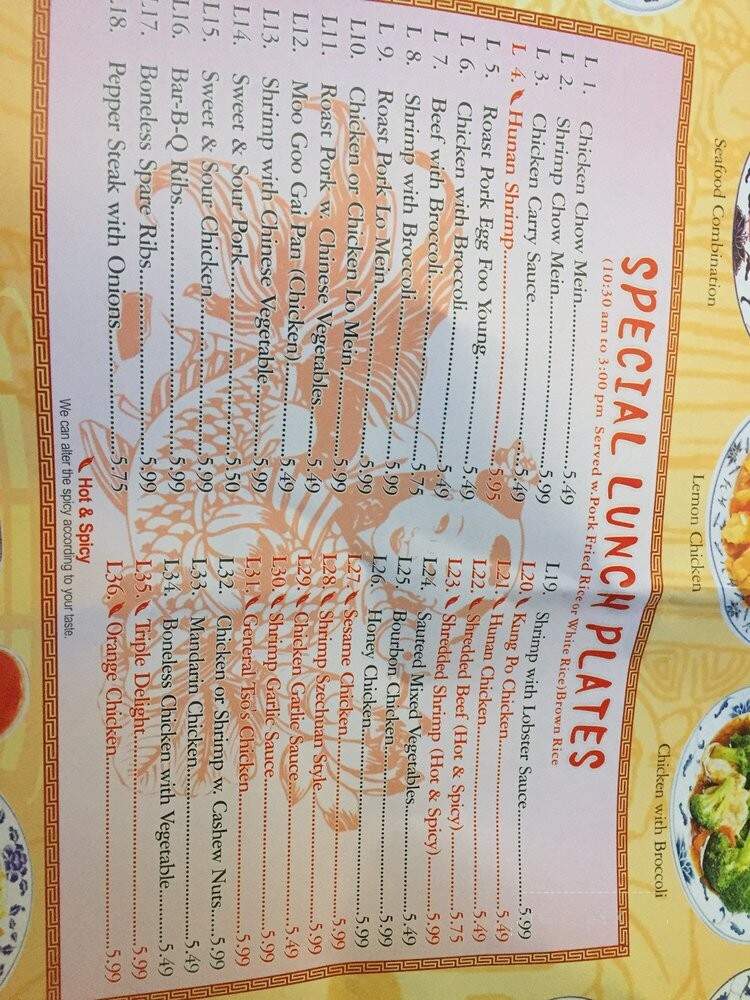 Seafood Combination
Lemon Chicken
Chicken with Broccoli
SPECIAL LUNCH PLATES
(10:30 am to 3:00 pm Served w.Pork Fried Rice or White Rice)Brown Rice
L 1. Chicken Chow Mein..........5.49
L 2. Shrimp Chow Mein..........5.99
L 3. Chicken Carry Sauce..........5.49
L 4. Hunan Shrimp..........5.95
L 5. Roast Pork Egg Foo Young..........5.49
L 6. Chicken with Broccoli..........5.49
L 7. Beef with Broccoli..........5.75
L 8. Shrimp with Broccoli..........5.99
L 9. Roast Pork Lo Mein..........5.99
L10. Chicken or Chicken Lo Mein..........5.99
L11. Roast Pork w. Chinese Vegetables..........5.49
L12. Moo Goo Gai Pan (Chicken)..........5.49
L13. Shrimp with Chinese Vegetable..........5.99
L14. Sweet & Sour Pork..........5.50
L15. Sweet & Sour Chicken..........5.99
L16. Bar-B-Q Ribs..........5.99
L17. Boneless Spare Ribs..........5.99
L18. Pepper Steak with Onions..........5.75
L19. Shrimp with Lobster Sauce..........5.99
L20. Kung Po Chicken..........5.49
L21. Hunan Chicken..........5.49
L22. Shredded Beef (Hot & Spicy)..........5.75
L23. Shredded Shrimp (Hot & Spicy)..........5.99
L24. Sauteed Mixed Vegetables..........5.49
L25. Bourbon Chicken..........5.99
L26. Honey Chicken..........5.99
L27. Sesame Chicken..........5.99
L28. Shrimp Szechuan Style..........5.99
L29. Chicken Garlic Sauce..........5.49
L30. Shrimp Garlic Sauce..........5.99
L31. General Tso's Chicken..........5.99
L32. Chicken or Shrimp w. Cashew Nuts.....5.99
L33. Mandarin Chicken..........5.49
L34. Boneless Chicken with Vegetable..........5.49
L35. Triple Delight..........5.99
L36. Orange Chicken..........5.99
Hot & Spicy
We can alter the spicy according to your taste.